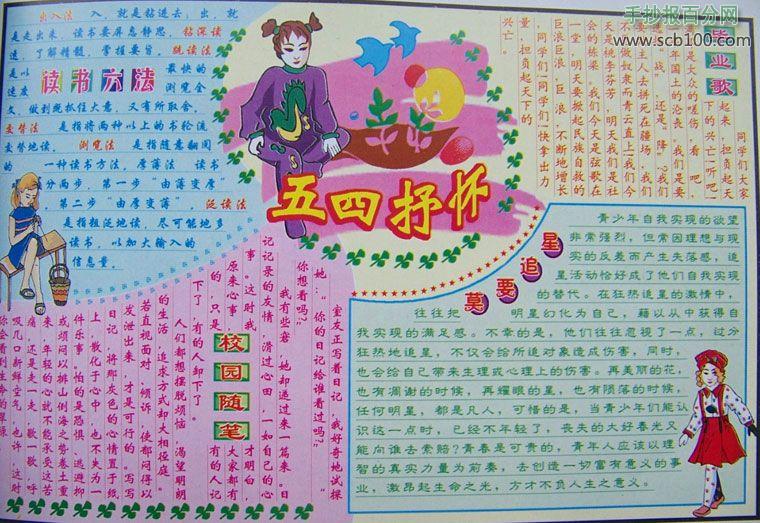 手抄报百分网
www.scb100.com
出入法 入，就是钻进去；出，就
是走出来，读书要屏息静思，钻深读
透，了解精髓，掌握要旨。跳读法
是以 最快的
速度 浏览全
文，做到既抓住大意，又有所取舍。
交替法 是指将两种以上的书轮流
交替地读。浏览法 是指随意翻阅
的一种读书方法。厚薄法 读书
分两步，第一步“由薄变厚”
第二步“由厚变薄”。泛读法
是指粗泛地读，尽可能地多
读书，以加大输入的
信息量。
读书六法
五四抒怀
毕业歌
同学们大家
起来，担负起天
下的兴亡！听吧！
是大众的嗟伤，看吧！
年国土的沦丧，我们是要
“战”还是“降”？我们
要主人去拼死在疆场，我们
做奴隶而青云直上！我们今
天是桃李芬芳，明天我们是社
会的栋梁。我们今天是弦歌在
一堂，明天要掀起民族自救的
巨浪巨浪，巨浪，不断地增长
！同学们！同学们！快拿出力
量，担负起天下的
兴亡。
莫要追星
青少年自我实现的欲望
非常强烈，但常因理想与现
实的反差而产生失落感，追
星活动恰好成了他们自我实现
的替代。在狂热追星的激情中，
往往把 明星幻化为自己，藉以从中获得自
我实现的满足感。不幸的是，他们往往忽视了一点，过分
狂热地追星，不仅会给所追对象造成伤害，同时，
也会给自己带来生理或心理上的伤害。再美丽的花，
也有凋谢的时候，再耀眼的星，也有陨落的时候，
任何明星，都是凡人，可惜的是，当青少年们能认
识这一点时，已经不年轻了，丧失的大好春光又
能向谁去索赔？青春是可贵的，青年人应该以理
智的真实力量为前奏，去创造一切富有意义的事
业，激昂起生命之光，方才不负人生之意义。
校园随笔
室友正写着日记，我好奇地试探
她：“你的日记给谁看过吗？”
你想看吗？
我有些窘，她却递过来一篇来。日
记记录的友情，滑过心田，一如自己的心
事。这时我 才明白，
原来心事 大家都有
的，只是 有的人记
下了，有的人却下了。
人们都想摆脱烦恼，渴望明朗
的生活，追求方式却大相径庭。
若直视面对，倾诉，使郁闷得以
发泄出来，才是可行的。写写
日记，将那灰色的心情置于纸
上，散化于心中，也不失为一
件乐事。怕的是恐惧，逃避抑
或烦闷以排山倒海之势卷土重
来，年轻的心就不能承受这苦
痛，还是走一走，歌一歌，呼
吸几口新鲜空气，也许，这时
你会看到生命的草原